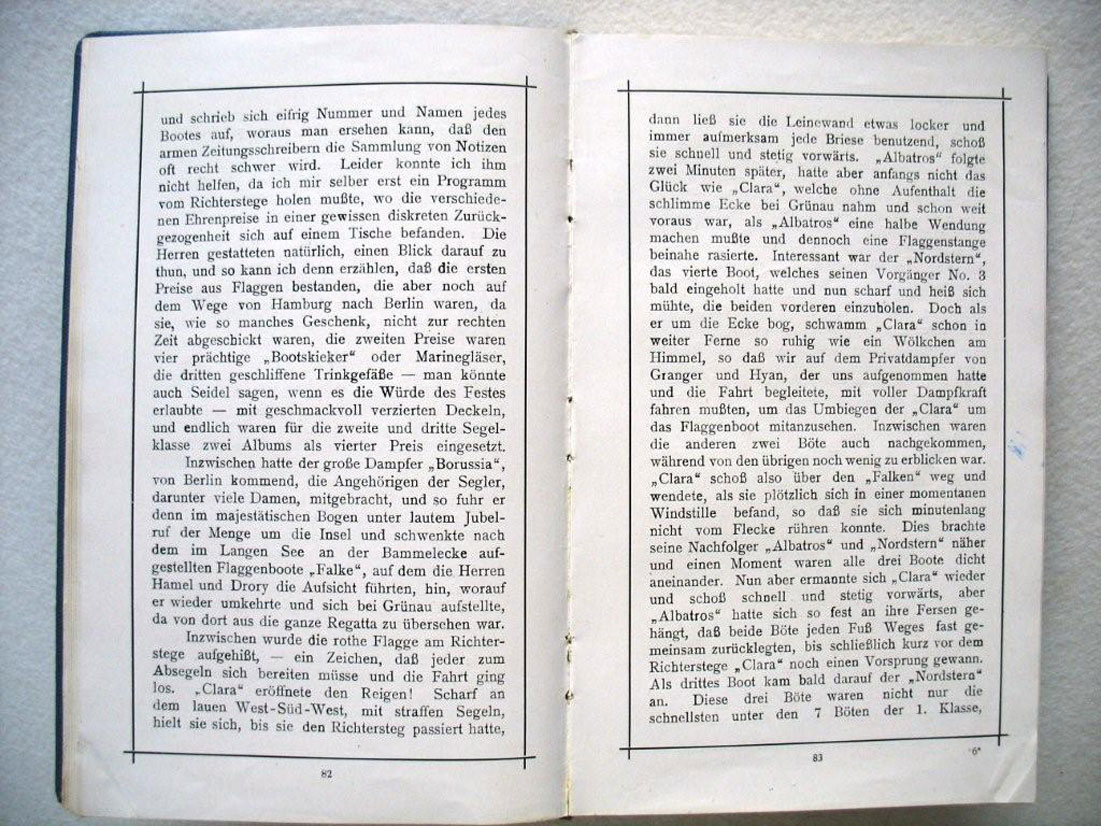 und schrieb sich eifrig Nummer und Namen jedes
Bootes auf, woraus man ersehen kann, daß den
armen Zeitungsschreibern die Sammlung von Notizen
oft recht schwer wird. Leider konnte ich ihm
nicht helfen, da ich mir selber erst ein Programm
vom Richterstege holen mußte, wo die verschiede-
nen Ehrenpreise in einer gewissen diskreten Zurück-
gezogenheit sich auf einem Tische befanden. Die
Herren gestatteten natürlich, einen Blick darauf zu
thun, und so kann ich denn erzählen, daß die ersten
Preise aus Flaggen bestanden, die aber noch auf
dem Wege von Hamburg nach Berlin waren, da
sie, wie so manches Geschenk, nicht zur rechten
Zeit abgeschickt waren, die zweiten Preise waren
vier prächtige „Bootskieker“ oder Marinegläser,
die dritten geschliffene Trinkgefäße — man könnte
auch Seidel sagen, wenn es die Würde des Festes
erlaubte — mit geschmackvoll verzierten Deckeln,
und endlich waren für die zweite und dritte Segel-
klasse zwei Albums als vierter Preis eingesetzt.
Inzwischen hatte der große Dampfer „Borussia“,
von Berlin kommend, die Angehörigen der Segler,
darunter viele Damen, mitgebracht, und so fuhr er
denn im majestätischen Bogen unter lautem Jubel-
ruf der Menge um die Insel und schwenkte nach
dem im Langen See an der Bammelecke auf-
gestellten Flaggenboote „Falke“, auf dem die Herren
Hamel und Drory die Aufsicht führten, hin, worauf
er wieder umkehrte und sich bei Grünau aufstellte,
da von dort aus die ganze Regatta zu übersehen war.
Inzwischen wurde die rothe Flagge am Richter-
stege aufgehißt, — ein Zeichen, daß jeder zum
Absegeln sich bereiten müsse und die Fahrt ging
los. „Clara“ eröffnete den Reigen! Scharf an
dem lauen West-Süd-West, mit straffen Segeln,
hielt sie sich, bis sie den Richtersteg passiert hatte,
82
dann ließ sie die Leinewand etwas locker und
immer aufmerksam jede Briese benutzend, schoß
sie schnell und stetig vorwärts. „Albatros“ folgte
zwei Minuten später, hatte aber anfangs nicht das
Glück wie „Clara“, welche ohne Aufenthalt die
schlimme Ecke bei Grünau nahm und schon weit
voraus war, als „Albatros“ eine halbe Wendung
machen mußte und dennoch eine Flaggenstange
beinahe rasierte. Interessant war der „Nordstern“,
das vierte Boot, welches seinen Vorgänger No. 3
bald eingeholt hatte und nun scharf und heiß sich
mühte, die beiden vorderen einzuholen. Doch als
er um die Ecke bog, schwamm „Clara“ schon in
weiter Ferne so ruhig wie ein Wölkchen am
Himmel, so daß wir auf dem Privatdampfer von
Granger und Hyan, der uns aufgenommen hatte
und die Fahrt begleitete, mit voller Dampfkraft
fahren mußten, um das Umbiegen der „Clara“ um
das Flaggenboot mitanzusehen. Inzwischen waren
die anderen zwei Böte auch nachgekommen,
während von den übrigen noch wenig zu erblicken war.
„Clara“ schoß also über den „Falken“ weg und
wendete, als sie plötzlich sich in einer momentanen
Windstille befand, so daß sie sich minutenlang
nicht vom Flecke rühren konnte. Dies brachte
seine Nachfolger „Albatros“ und „Nordstern“ näher
und einen Moment waren alle drei Boote dicht
aneinander. Nun aber ermannte sich „Clara“ wieder
und schoß schnell und stetig vorwärts, aber
„Albatros“ hatte sich so fest an ihre Fersen ge-
hängt, daß beide Böte jeden Fuß Weges fast ge-
meinsam zurücklegten, bis schließlich kurz vor dem
Richterstege „Clara“ noch einen Vorsprung gewann.
Als drittes Boot kam bald darauf der „Nordstern“
an. Diese drei Böte waren nicht nur die
schnellsten unter den 7 Böten der 1. Klasse,
83
6*